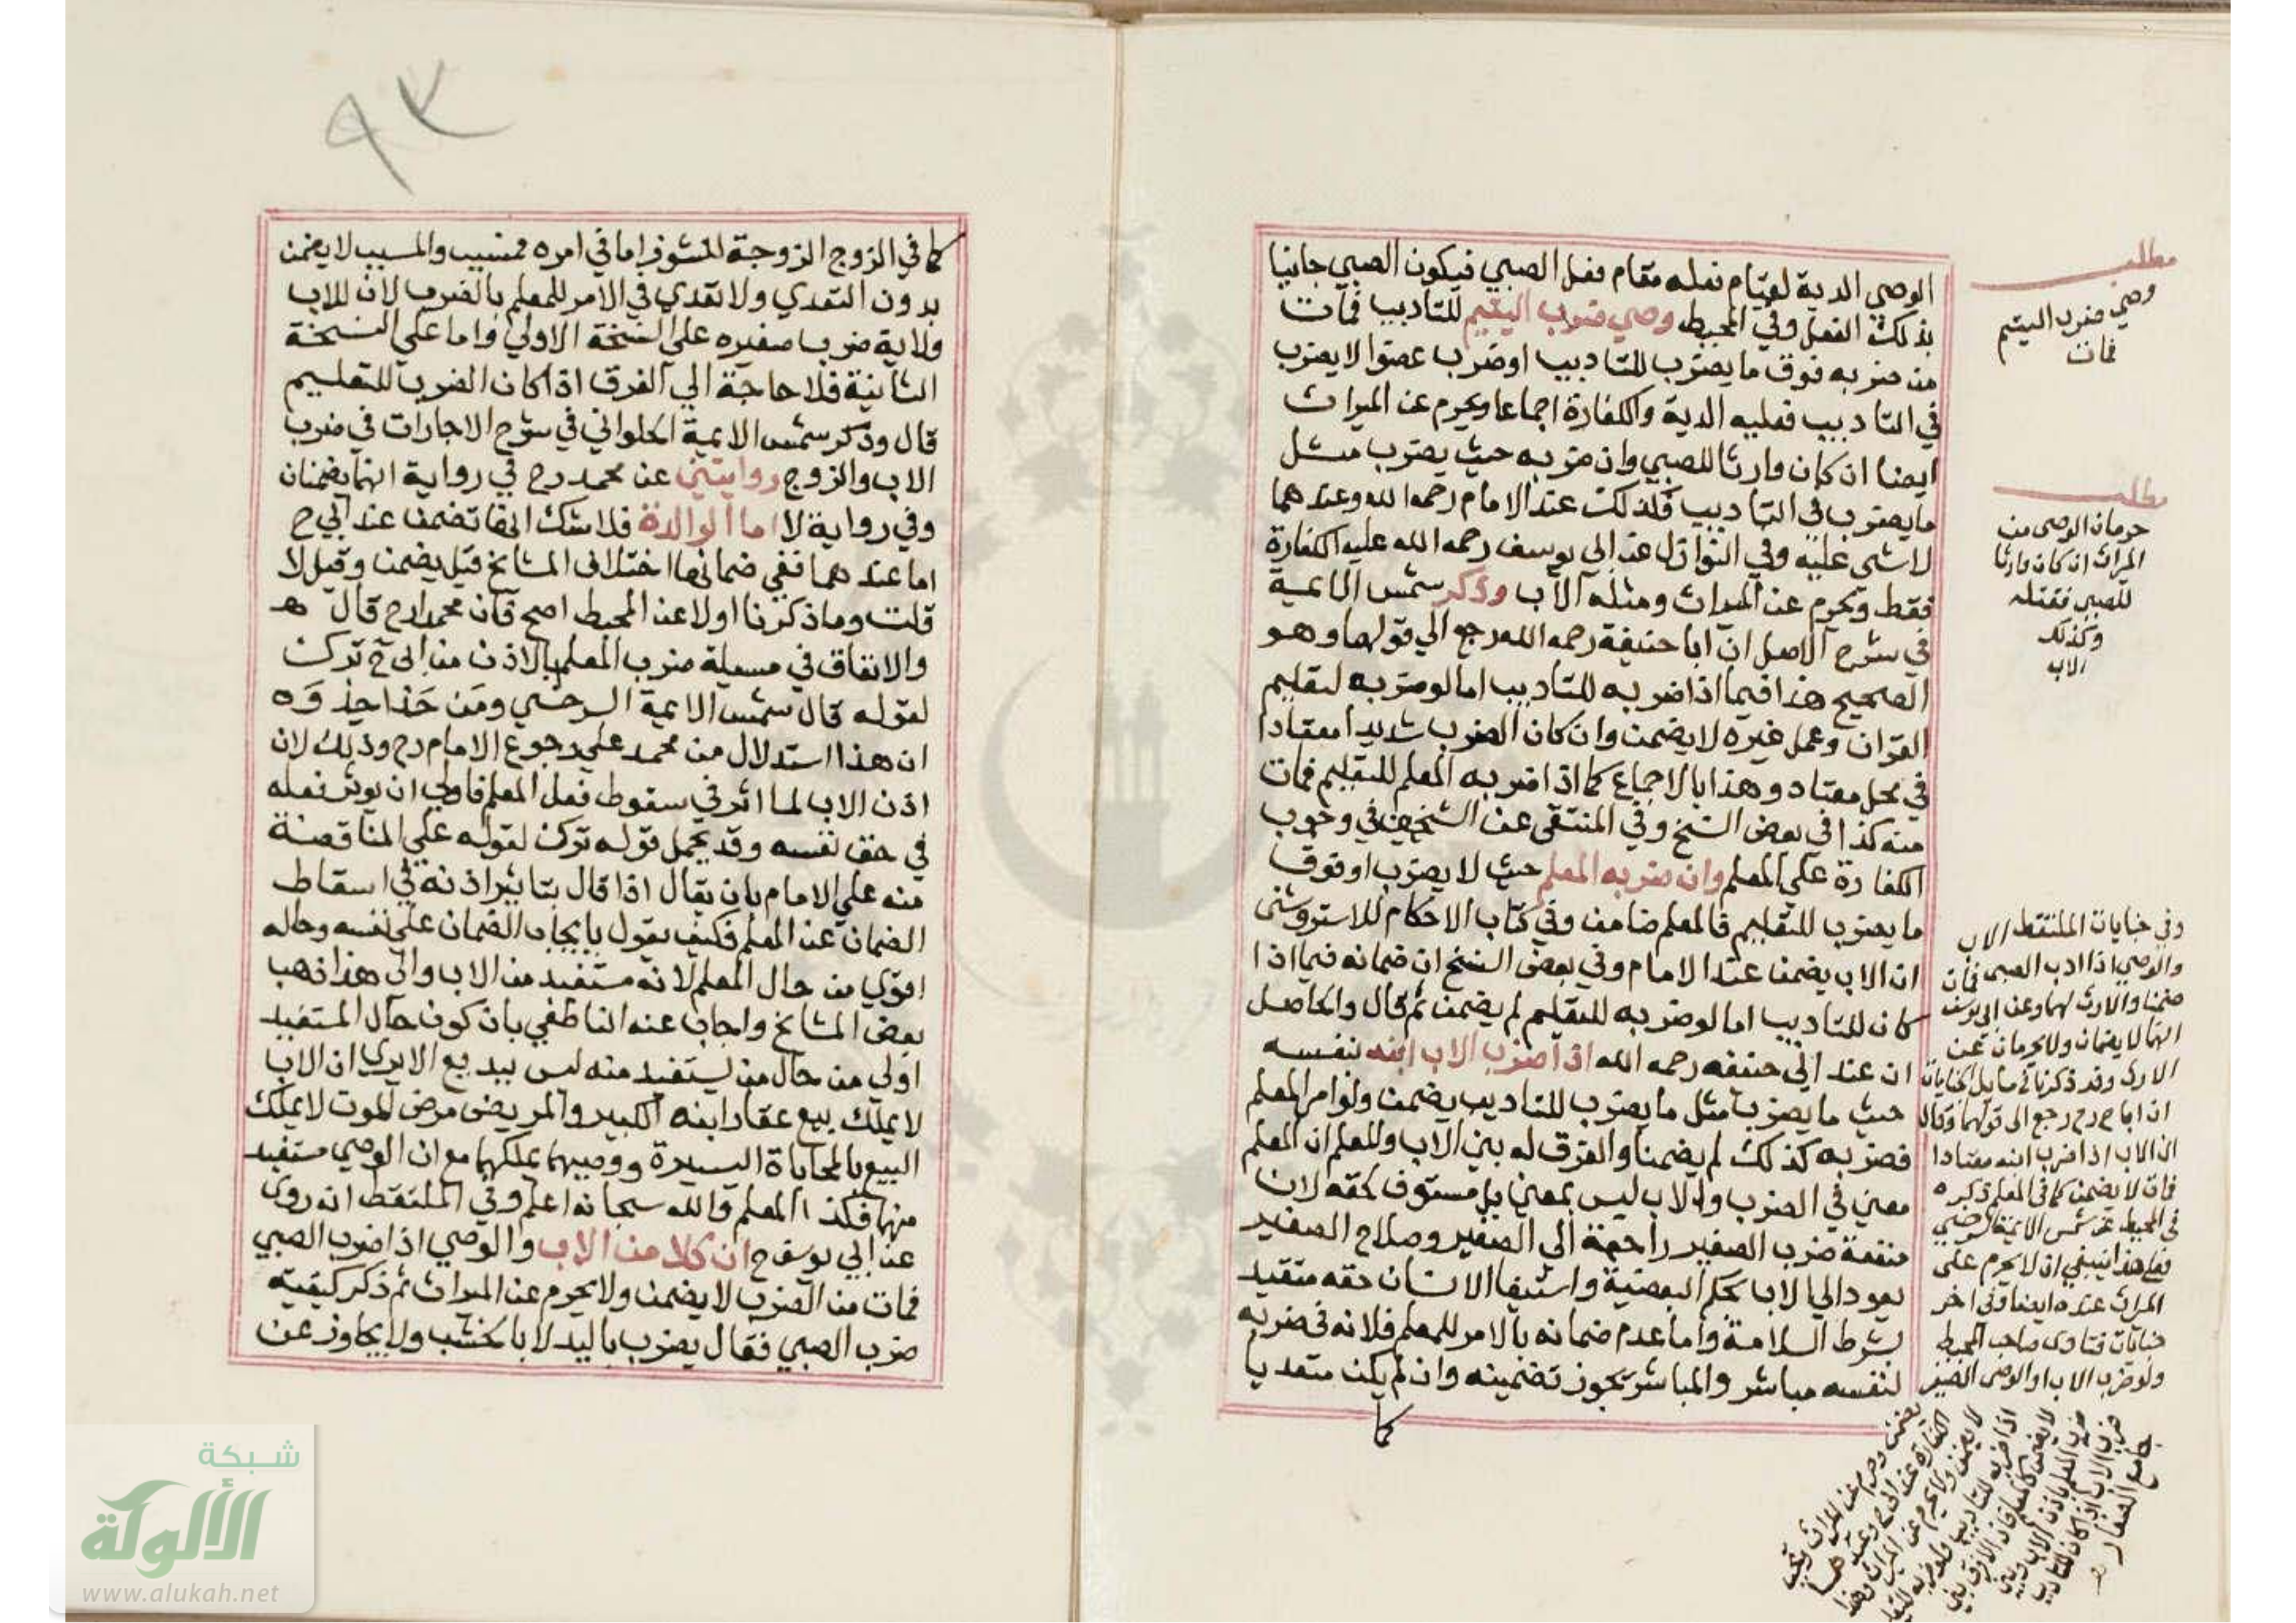 الوصي الدية لقيام فعله مقام فعل الصبي فيكون الصبي جانيا
بذلك الفعل وفي المحيط وصي ضرب اليتيم للتاديب فمات
من ضربه فوق ما يضرب للتاديب او ضرب عضوا لا يضرب
في التاديب فعليه الدية والكفارة اجماعا ويحرم عن الميراث
ايضا ان كان وارثا للصبي وان ضربه حيث يضرب مثل
ما يضرب في التاديب فكذلك عند الامام رحمه الله وعندهما
لا شي عليه وفي النوازل عن ابي يوسف رحمه الله عليه الكفارة
فقط ويحرم عن الميراث ومثله الاب وذكر شمس الايمة
في شرح الاصل ان ابا حنيفة رحمه الله رجع الي قولهما وهو
الصحيح هذا فيما اذا ضربه للتاديب اما لو ضربه لتعليم
القران وعمل غيره لا يضمن وان كان الضرب شديدا معتادا
في محل معتاد وهذا بالاجماع كما اذا ضربه المعلم للتعليم فمات
منه كذا في بعض النسخ وفي المنتقى عن الشيخين في وجوب
الكفارة علي المعلم وان ضربه المعلم حيث لا يضرب او فوق
ما يضرب للتعليم فالمعلم ضامن وفي كتاب الاحكام للاستروشنى
ان الاب يضمن عند الامام وفي بعض النسخ ان ضمانه فيما اذا
كان للتاديب اما لو ضربه للتعليم لم يضمن ثم قال والحاصل
ان عند ابي حنيفه رحمه الله اذا ضرب الاب ابنه بنفسه
حيث ما يضرب مثل ما يضرب للتاديب يضمن ولو امر المعلم
فضربه كذلك لم يضمنا والفرق له بين الاب والمعلم ان المعلم
معين في الضرب والاب ليس بمعين بل مستوف لحقه لان
منفعة ضرب الصغير راجعة الي الصغير وصلاح الصغير
يعود الي الاب بحكم البعضية واستيفا الانسان حقه متقيد
بشرط السلامة واما عدم ضمانه بالامر للمعلم فلانه في ضربه
لنفسه مباشر والمباشر يجوز تضمينه وان لم يكن متعديا
كما
مطلب
وصي ضرب اليتيم
فمات
مطلب
حرمان الوصي من
الميراث ان كان وارثا
للصبي فقتله
وكذلك
الاب
وفي جنايات الملتقط الاب
والوصي اذا ادب الصبي فمات
ضمنا والارث لهما وعن ابي يوسف
انهما لا يضمنان ولا يحرمان عن
الارث وقد ذكرنا في مسايل الجنايات
ان ابا ح رح رجع الى قولهما وقال
ان الاب اذا ضرب ابنه معتادا
فمات لا يضمن كما في المعلم ذكره
في المحيط عن شمس الايمة السرخسي
فعلى هذا ينبغي ان لا يحرم على
الميراث عنده ايضا وفي اخر
جنايات فتاوى صاحب المحيط
ولو ضرب الاب او الوصي الصغير
يضمن وحرم عن الميراث وتجب
الكفارة عند ابي ح وعندهما
لا يضمن ولا يحرم عن الميراث وهذا
كما في الزوج الزوجة للنشوز اما في امره فمسبب والمسبب لا يضمن
بدون التعدي ولا تعدي في الامر للمعلم بالضرب لان للاب
ولاية ضرب صغيره علي النسخة الاولي واما علي النسخة
الثانية فلا حاجة الي الفرق اذا كان الضرب للتعليم
قال وذكر شمس الايمة الحلواني في شرح الاجارات في ضرب
الاب والزوج روايتين عن محمد رح في رواية انهما يضمنان
وفي رواية لا اما الوالدة فلا شك انها تضمن عند ابي ح
اما عندهما ففي ضمانها اختلاف المشايخ قيل يضمن وقيل لا
قلت وما ذكرنا اولا عن المحيط اصح فان محمدا رح قال هـ
والاتفاق في مسيلة ضرب المعلم بالاذن من ابي ح ترك
لقوله قال شمس الايمة السرخسي ومن حذا حذوه
ان هذا استدلال من محمد علي رجوع الامام رح وذلك لان
اذن الاب لما اثر في سقوط فعل المعلم فاولي ان يوثر فعله
في حق نفسه وقد يحمل قوله ترك لقوله علي المناقضة
منه علي الامام بان يقال اذا قال بتاثير اذنه في اسقاط
الضمان عن المعلم فكيف يقول بايجاب الضمان علي نفسه وحاله
اقوي من حال المعلم لانه مستفيد من الاب والى هذا ذهب
بعض المشايخ واجاب عنه الناطفي بان كون حال المستفيد
اولي من حال من يستفيد منه ليس ببديع الا يري ان الاب
لا يملك بيع عقار ابنه الكبير والمريض مرض الموت لا يملك
البيع بالمحاباة اليسيرة ووصيهما يملكهما مع ان الوصي مستفيد
منهما فكذا المعلم والله سبحانه اعلم وفي الملتقط انه روى
عن ابي يوسف ح ان كلا من الاب والوصي اذا ضرب الصبي
فمات من الضرب لا يضمن ولا يحرم عن الميراث ثم ذكر كيفية
ضرب الصبي فقال يضرب باليد لا بالخشب ولا يجاوز عن
شبكة
الألوكة
www.alukah.net